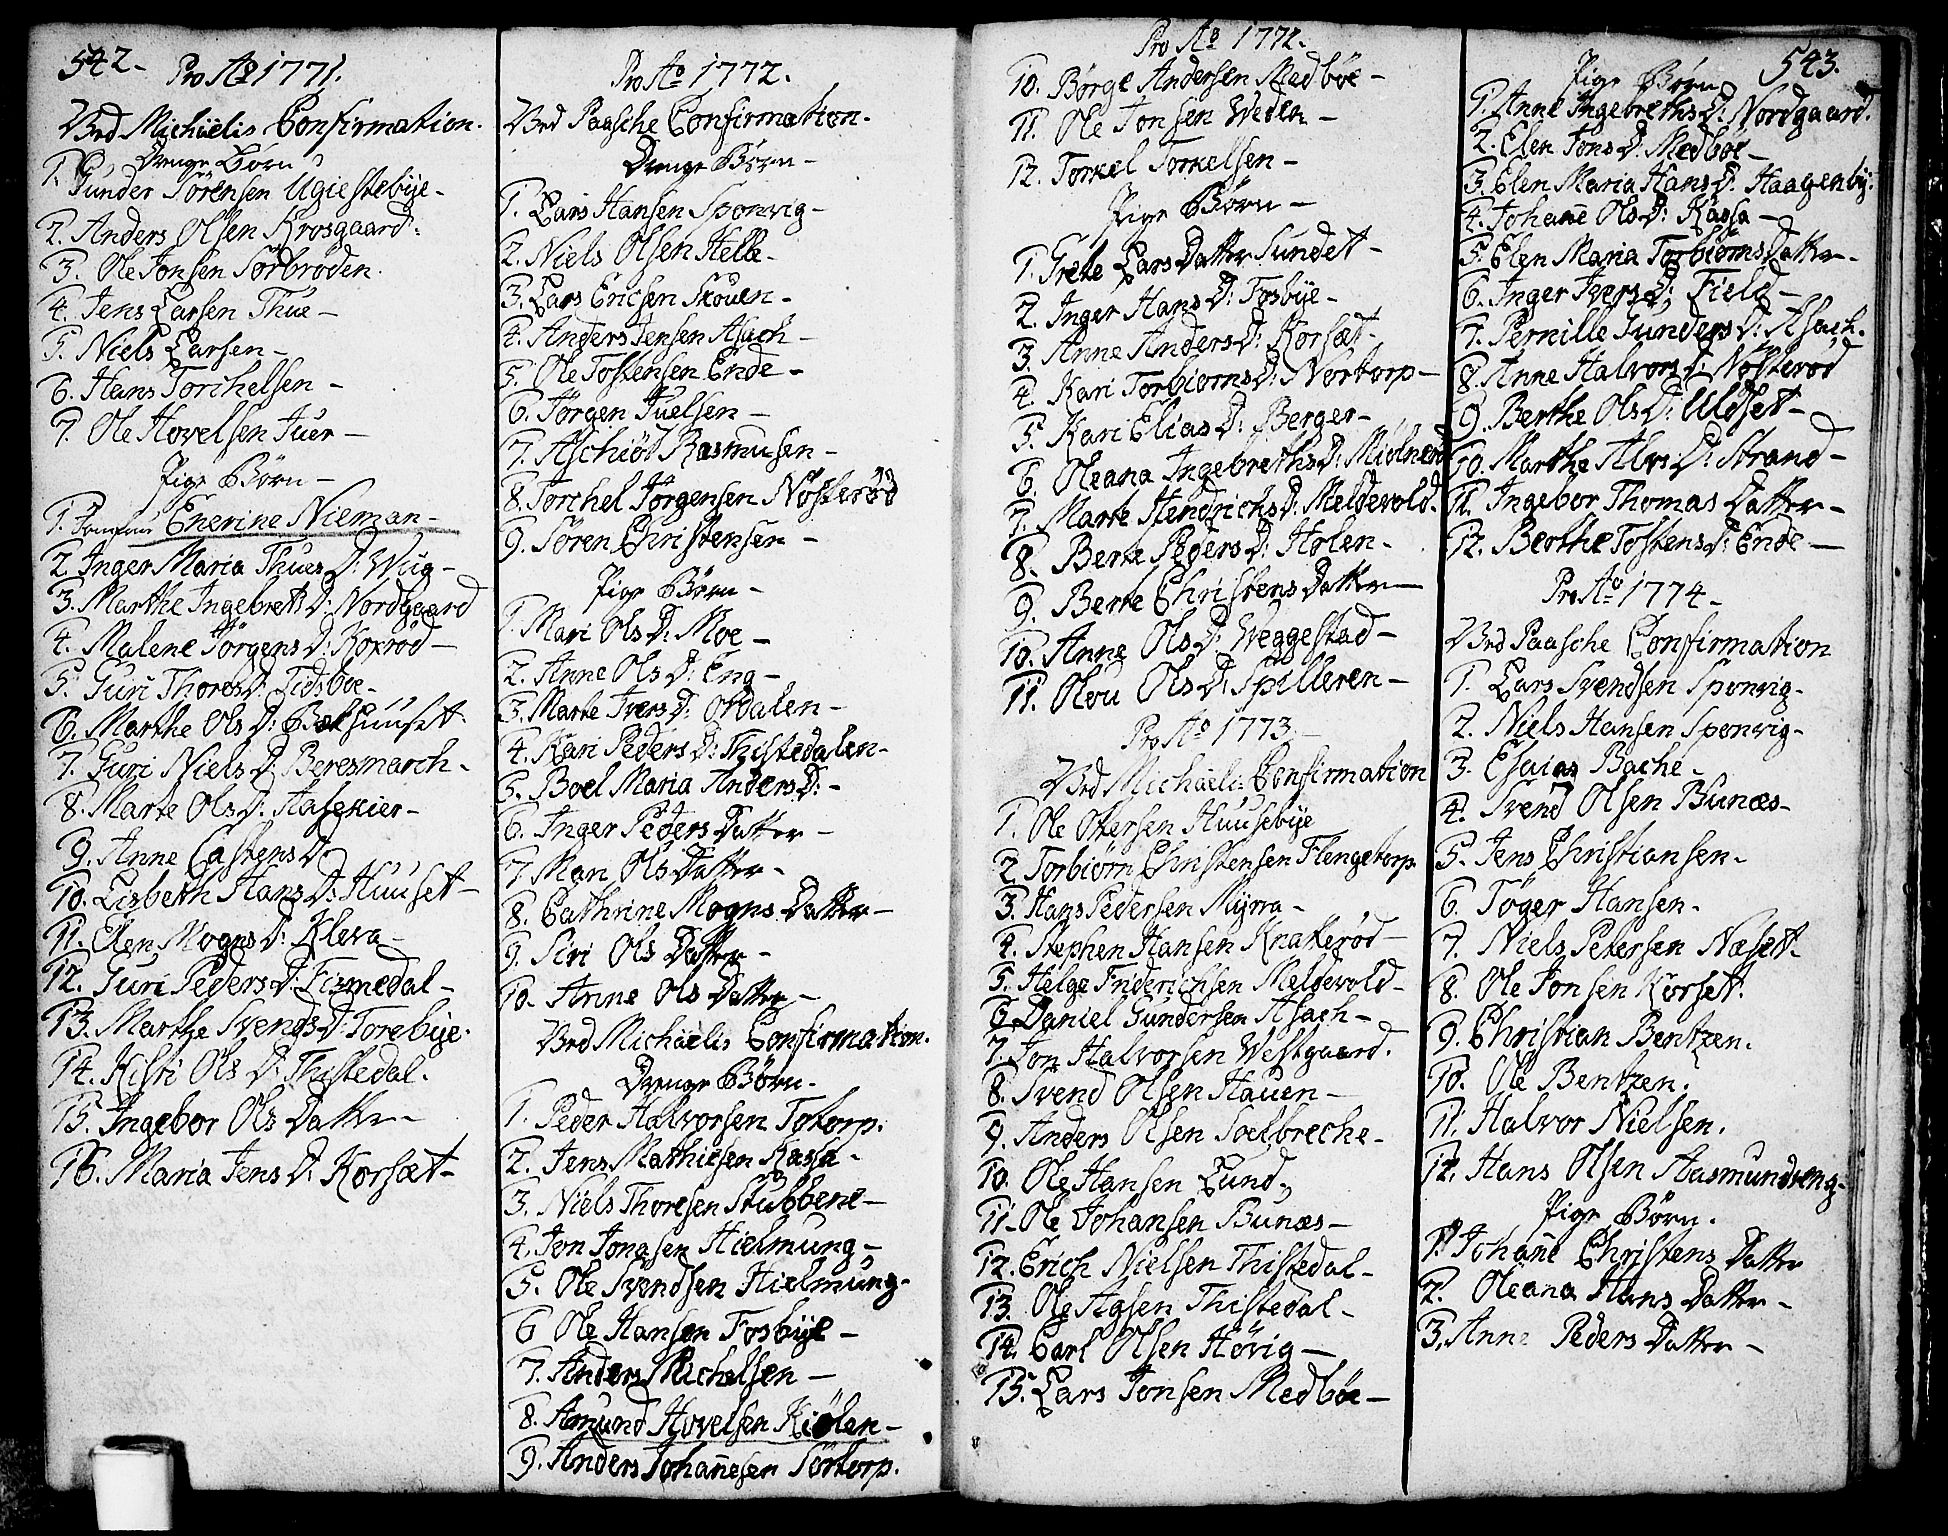 542-
Pro Ao 1771.
Ved Michäelis Confirmation.
Drenge Børn
1. Gunder Sørensen Ugiestebije-
2. Anders Olsen Krosgaard.
3. Ole Jonsen Sørbrøden.
4. Jens Larsen Thue-
5. Niels Larsen-
6. Hans Torchelsen-
7. Ole Hovelsen Juer-
Pige Børn-
1. Enerine Nieman-
2. Inger Maria Thues D: Wiig-
3. Marthe Ingebrets D: Nordgaard
4. Malene Jørgens D: Koxrød-
5. Guri Thores D: Tidsboe-
6. Marthe Ols D: Bækhuuset
7. Guri Niels D. Beresmarch-
8. Marte Ols D: Aasekier-
9. Anne Castens D.
10. Lisbeth Hans D: Huuset-
11. Elen Mogns D: Kleva-
12. Guri Peders D: Fismedal-
13. Marthe Svends D: Torebije.
14. Kisti Ols D: Thistedal.
15. Ingebor Ols Datter-
16. Maria Jens D: Korsæt-
Pro Ao 1772.
Ved Paasche Confirmation.
Drenge Børn-
1. Lars Hansen Sponvig-
2. Niels Olsen Helle-
3. Lars Ericsen Skouen-
4. Anders Jensen Asach-
5. Ole Tostensen Ende-
6. Jørgen Juelsen-
7. Aschiøl Rasmusen-
8. Torchel Jørgensen Nösterød
9. Søren Christensen-
Pige Børn-
1. Mari Ols D: Moe-
2. Anne Ols D: Eng-
3. Marte Ivers D: Ordalen-
4. Kari Peders D: Thistedalen-
5. Boel Maria Anders D:-
6. Inger Peders Datter-
7. Mari Ols Datter-
8. Cathrine Mogns Datter-
9. Siri Ols Datter-
10. Anne Ols Datter-
Ved Michäelis Confirmation.
Drenge Børn-
1. Peder Halvorsen Totorp.
2. Jens Mathiesen Kassa-
3. Niels Thoresen Stubbene-
4. Jon Jonasen Hielmung-
5. Ole Svendsen Hielmung-
6. Ole Hansen Fosbije-
7. Anders Michelsen-
8. Amund Hovelsen Kiølen-
9. Anders Johanesen Sörtorp.
Pro Ao 1772.
10. Børge Andersen Medbøe-
11. Ole Jonsen Weden-
12. Torkel Torkelsen-
Pige Børn-
1. Grete Lars Datter Sundet-
2. Inger Hans D: Fosbije-
3. Anne Anders D: Korsæt-
4. Kari Torbiorns D: Nortorp-
5. Kari Elias D: Berger-
6. Oleana Ingebreths D: Miølnerød
7. Marte Hendrichs D: Meldevold.
8. Berte Peders D: Holen-
9. Berte Christens Datter-
10. Anne Ols D: Weggestad-
11. Olou Ols D: Spilleren-
Pro Ao 1773-
Ved Michäeli: Confirmation
1. Ole Ottersen Huusebije
2. Torbiørn Christensen Flengetorp
3. Hans Pedersen Mijrra-
4. Stephen Hansen Knatterød-
5. Helge Friderichsen Meldevold-
6. Daniel Gundersen Asach-
7. Jon Halvorsen Westgaard.
8. Svend Olsen Hauen-
9. Anders Olsen Soelbreche-
10. Ole Hansen Lund-
11. Ole Johansen Bunæs-
12. Erich Nielsen Thistedal-
13. Ole Agsen Thistedal-
14. Carl Olsen Hövig-
15. Lars Jonsen Medbøe-
543.
Pige Børn
1. Anne Ingebreths D: Nordgaard.
2. Elen Jons D: Medbøe-
3. Elen Maria Hans D: Haagenbij.
4. Johane Ols D: Kassa-
5. Elen Maria Torbiorns Datter-
6. Inger Ivers D: Field-
7. Pernille Gunders D: Asach.
8. Anne Halvors D: Nösterød
9. Berthe Ols D: Uldset-
10. Marthe Alvs D: Strand-
11. Ingebor Thomas Datter-
12. Berthe Tostens D: Ende-
Pro Ao 1774-
Ved Paasche Confirmation
1. Lars Svendsen Sponvig-
2. Niels Hansen Sponvig-
3. Esaias Bache-
4. Svend Olsen Bunæs-
5. Jens Christiansen-
6. Töger Hansen-
7. Niels Petersen Næset-
8. Ole Jonsen Korset.
9. Christian Bentzen.
10. Ole Bentzen.
11. Halvor Nielsen.
12. Hans Olsen Aasmundreng-
Pige Børn.
1. Johane Christens Datter
2. Oleana Hans Datter-
3. Anne Peders Datter-